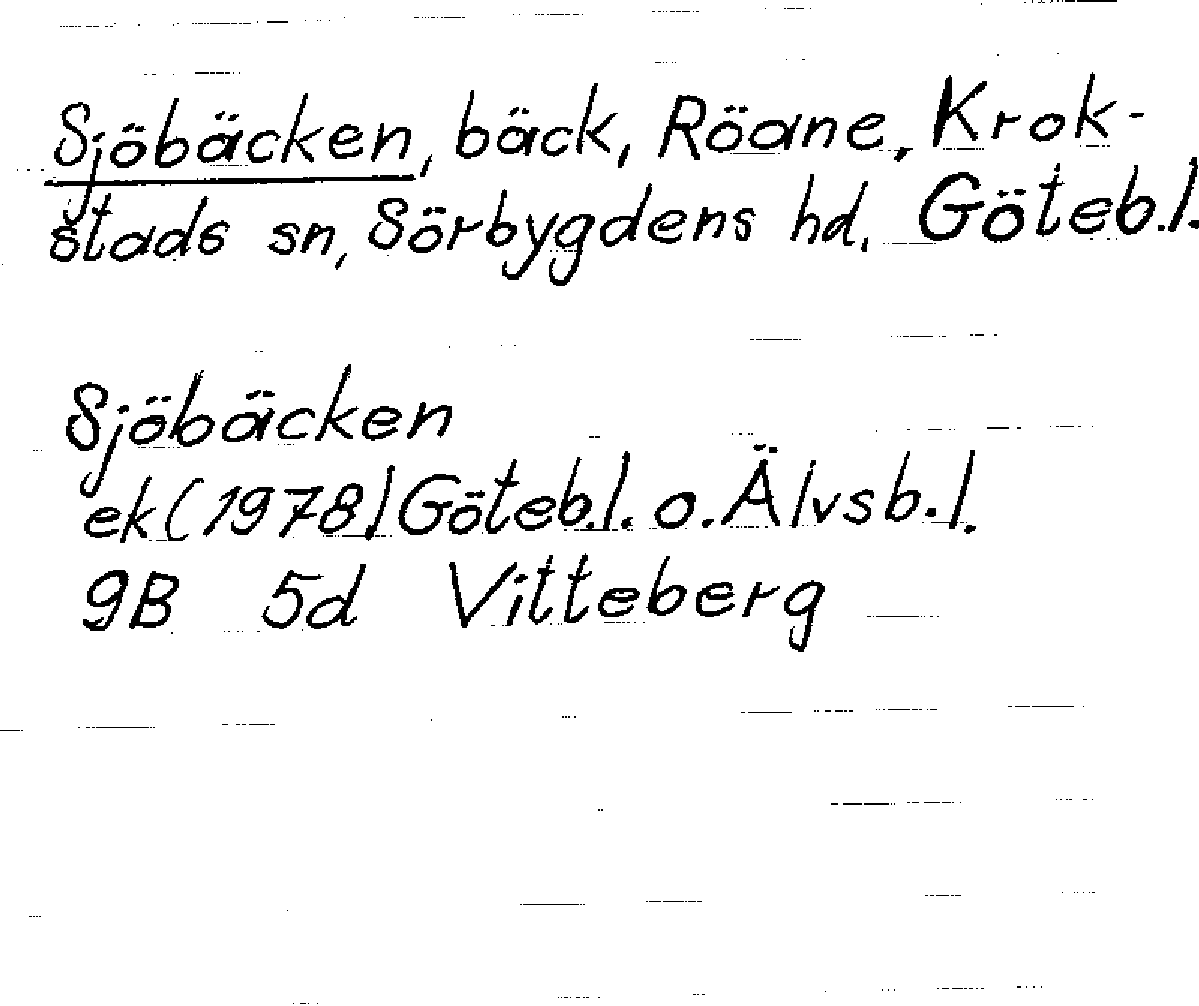 Sjöbäcken, bäck, Röane, Krok-
stads sn, Sörbygdens hd, Göteb.l.
Sjöbäcken
ek(1978) Göteb.l. o. Älvsb.l.
9B 5d Vitteberg